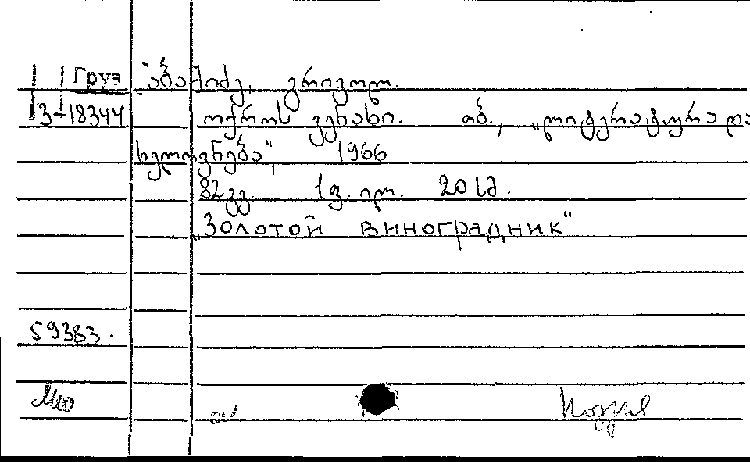 Груз აბაშიძე, გრიგოლ.
3-18344 ოქროს ვენახი. თბ., „ლიტერატურა და
ხელოვნება", 1966
82გვ. 1 ფ. ილ. 20სმ.
„Золотой виноградник"
59383.